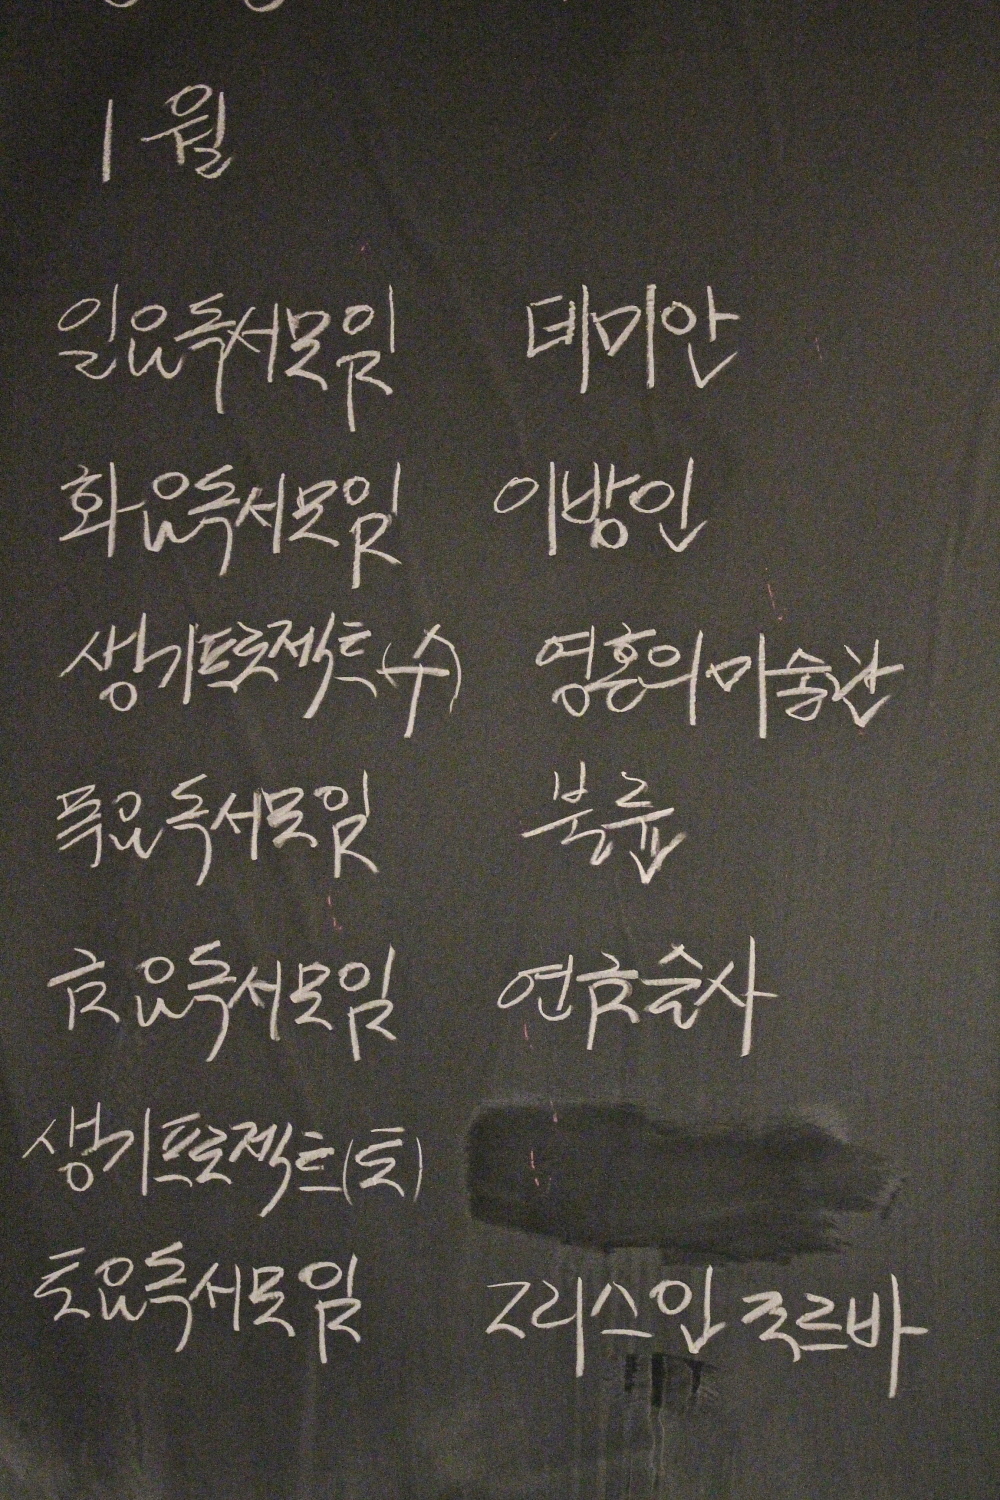 1월
일요독서모임 데미안
화요독서모임 이방인
생기프로젝트(수) 영혼의 미술관
목요독서모임 북룸
금요독서모임 연금술사
생기프로젝트(토)
토요독서모임 그리스인 조르바